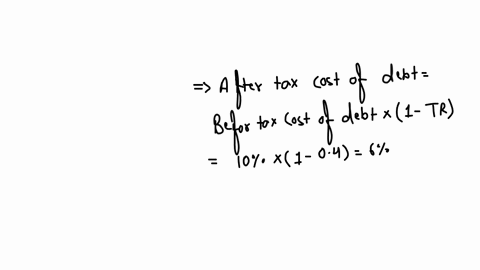 => After tax cost of debt =
Befor tax cost of debt × (1 - TR)
= 10% × (1 - 0.4) = 6%